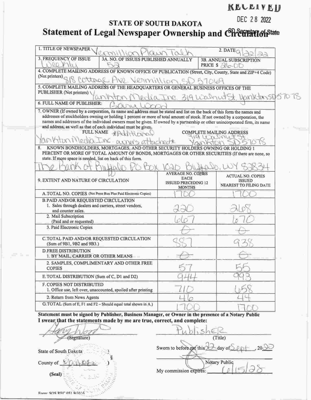 RECEIVED
DEC 28 2022
SD Secretary of State
STATE OF SOUTH DAKOTA
Statement of Legal Newspaper Ownership and Circulation
1. TITLE OF NEWSPAPER Vermillion Plain Talk
2. DATE
3. FREQUENCY OF ISSUE Weekly
3A. NO. OF ISSUES PUBLISHED ANNUALLY 52
3B. ANNUAL SUBSCRIPTION PRICE $
4. COMPLETE MAILING ADDRESS OF KNOWN OFFICE OF PUBLICATION (Street, City, County, State and ZIP+4 Code) (Not printers)
Vermillion SD 57069
5. COMPLETE MAILING ADDRESS OF THE HEADQUARTERS OR GENERAL BUSINESS OFFICES OF THE PUBLISHERS (Not printers)
Yankton Media Inc. 319 Walnut St Yankton SD 57078
6. FULL NAME OF PUBLISHER: Gary Wood
7. OWNER (If owned by a corporation, its name and address must be stated and listed on the back of this form the names and addresses of stockholders owning or holding 1 percent or more of total amount of stock. If not owned by a corporation, the names and addresses of the individual owners must be given. If owned by a partnership or other unincorporated firm, its name and address, as well as that of each individual must be given.)
FULL NAME
COMPLETE MAILING ADDRESS
Yankton Media Inc
Yankton SD 57078
8. KNOWN BONDHOLDERS, MORTGAGES, AND OTHER SECURITY HOLDERS OWNING OR HOLDING 1 PERCENT OR MORE OF TOTAL AMOUNT OF BONDS, MORTGAGES OR OTHER SECURITIES (If there are none, so state. If more space is needed, list on back of this form.
The Bank of Buffalo PO Box Buffalo, WY 82834
9. EXTENT AND NATURE OF CIRCULATION
AVERAGE NO. COPIES EACH ISSUED PRECEDING 12 MONTHS
ACTUAL NO. COPIES ISSUED NEAREST TO FILING DATE
A. TOTAL NO. COPIES 1700 1700
B. PAID AND/OR REQUESTED CIRCULATION
1. Sales through dealers and carriers, street vendors, and counter sales 220 268
2. Mail Subscription (Paid and or requested) 667 670
3. Paid Electronic Copies
C. TOTAL PAID AND/OR REQUESTED CIRCULATION (Sum of 9B1, 9B2 and 9B3.) 887 938
D. FREE DISTRIBUTION
1. BY MAIL, CARRIER OR OTHER MEANS
2. SAMPLES, COMPLIMENTARY AND OTHER FREE COPIES 57 55
E. TOTAL DISTRIBUTION (Sum of C, D1 and D2) 944 993
F. COPIES NOT DISTRIBUTED
1. Office use, left over, unaccounted, spoiled after printing 710 658
2. Return from News Agents 46 49
G. TOTAL (Sum of E, F1 and F2 - Should equal total shown in A.) 1700 1700
Statement must be signed by Publisher, Business Manager, or Owner in the presence of a Notary Public
I swear that the statements made by me are true, correct, and complete:
Publisher
(Signature)
(Title)
State of South Dakota
Sworn to before me this 22 day of Sept 2022
County of Yankton
Notary Public
(Seal)
My commission expires: